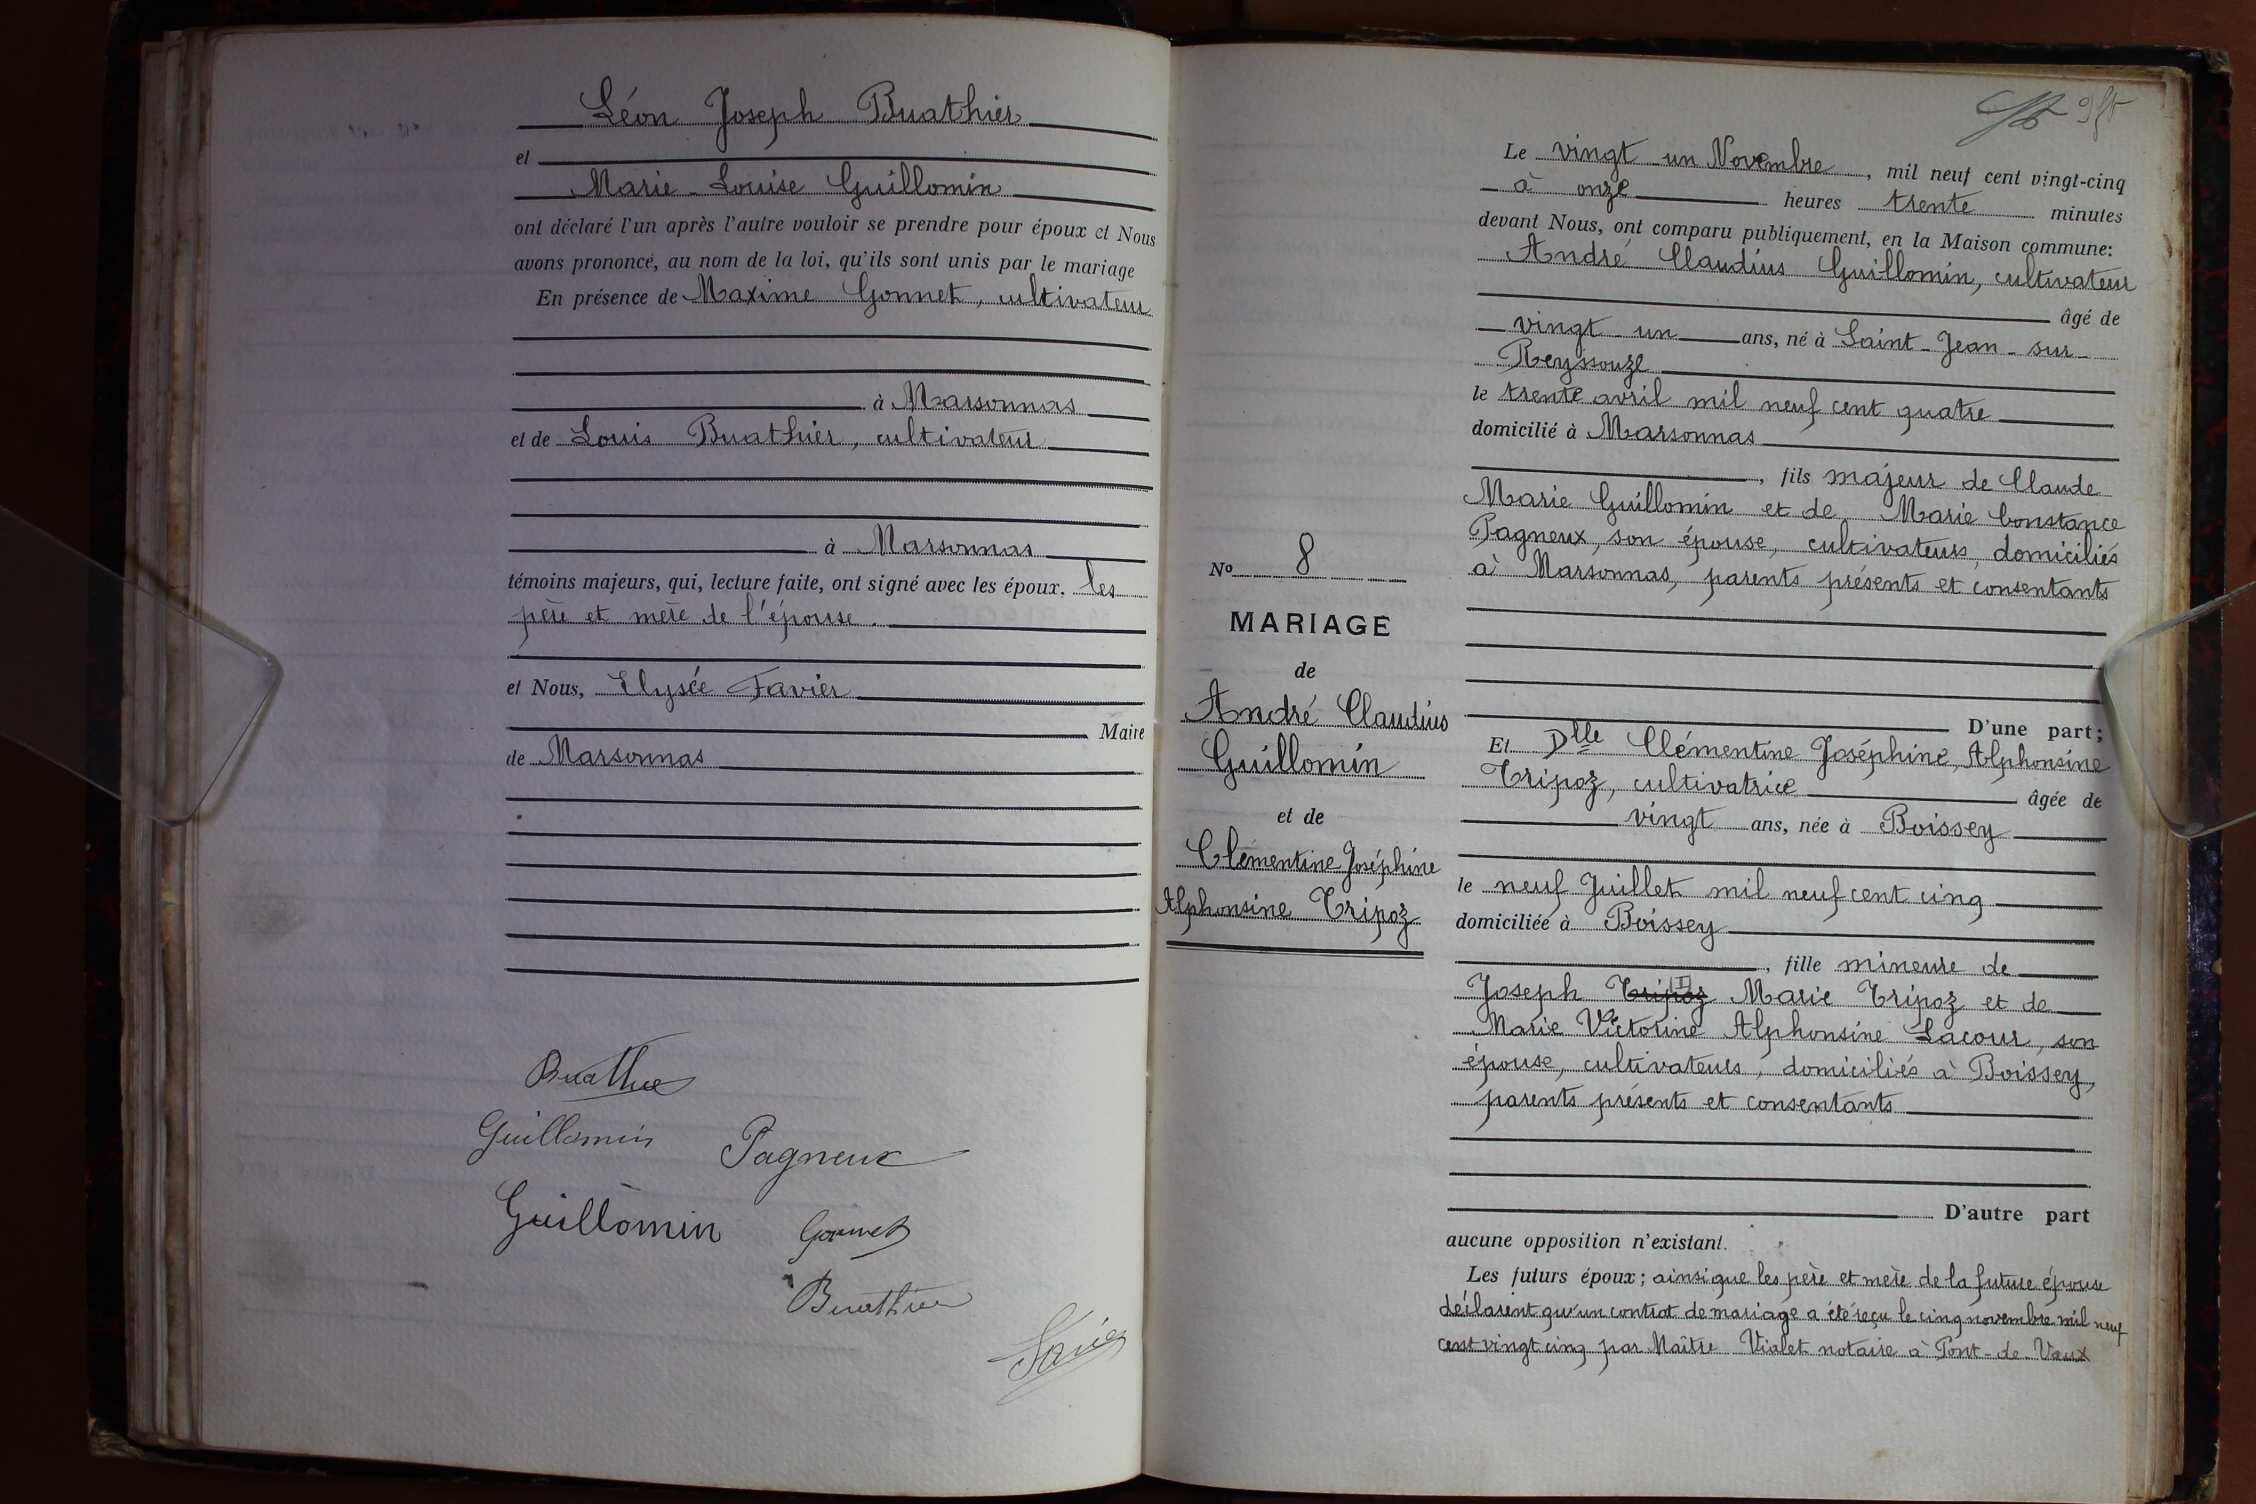 Léon Joseph Buathier
et
Marie-Louise Guillomin
ont déclaré l'un après l'autre vouloir se prendre pour époux et Nous
avons prononcé, au nom de la loi, qu'ils sont unis par le mariage
En présence de Maxime Gonnet, cultivateur
à Marsonnas
et de Louis Buathier, cultivateur
à Marsonnas
témoins majeurs, qui, lecture faite, ont signé avec les époux, les
père et mère de l'épouse.
et Nous, Elysée Favier
Maire
de Marsonnas
Buathier
Guillomin Pagneux
Guillomin Gonnet
Buathier
Favier
Le vingt-un Novembre, mil neuf cent vingt-cinq
à onze heures trente minutes
devant Nous, ont comparu publiquement, en la Maison commune:
André Claudius Guillomin, cultivateur
âgé de
vingt-un ans, né à Saint-Jean-sur-
Reyssouze
le trente avril mil neuf cent quatre
domicilié à Marsonnas
, fils majeur de Claude
Marie Guillomin et de Marie Constance
Pagneux, son épouse, cultivateurs, domiciliés
à Marsonnas, parents présents et consentants
D'une part;
Nº 8
MARIAGE
de
André Claudius
Guillomin
et de
Clémentine Joséphine
Alphonsine Tripoz
Et Dlle Clémentine Joséphine, Alphonsine
Tripoz, cultivatrice âgée de
vingt ans, née à Boissey
le neuf Juillet mil neuf cent cinq
domiciliée à Boissey
, fille mineure de
Joseph Tripoz Marie Tripoz et de
Marie Victorine Alphonsine Lacour, son
épouse, cultivateurs, domiciliés à Boissey,
parents présents et consentants
D'autre part
aucune opposition n'existant.
Les futurs époux; ainsi que les père et mère de la future épouse
déclarent qu'un contrat de mariage a été reçu le cinq novembre mil neuf
cent vingt cinq par Maître Vialet notaire à Pont-de-Vaux